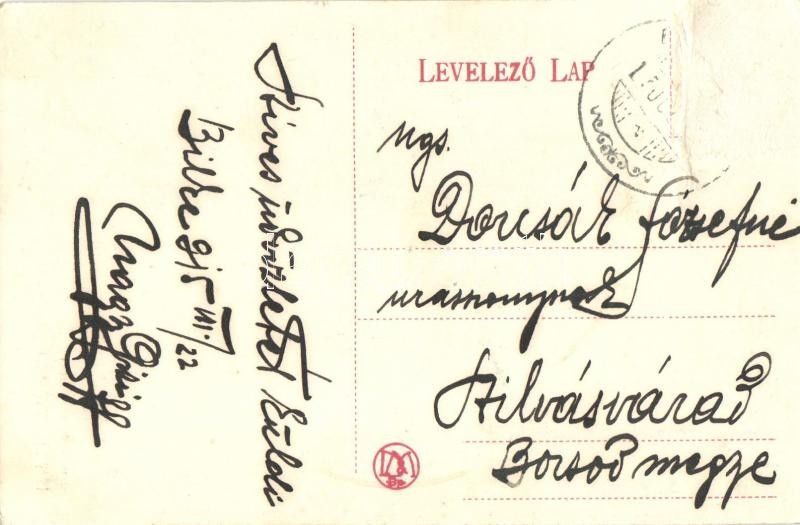 LEVELEZŐ LAP
Szives üdvözletet küldi
Nagy
Ngs.
Dorcsák Józsefné
urasszonynak
Szilvásvárad
Borsod megye